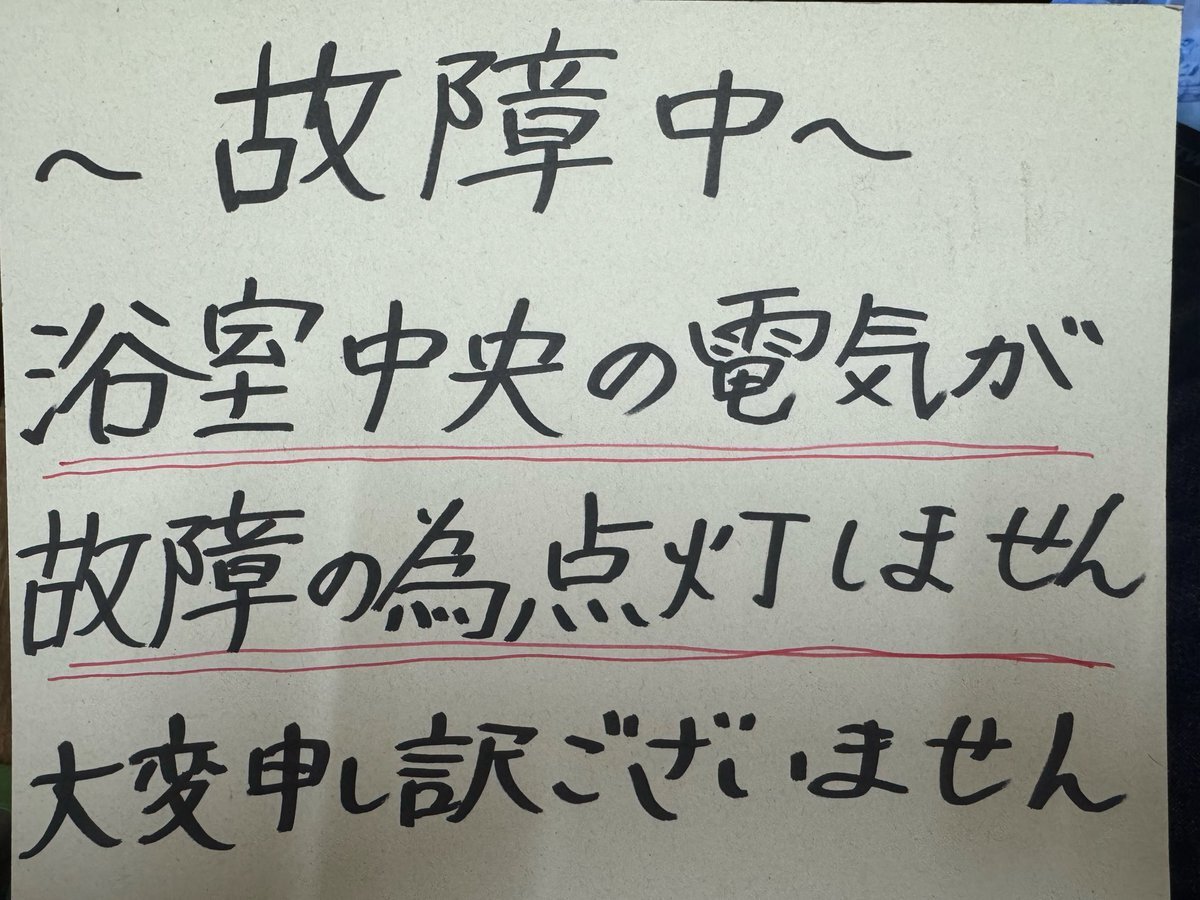 ～故障中～
浴室中央の電気が
故障の為点灯しません
大変申し訳ございません